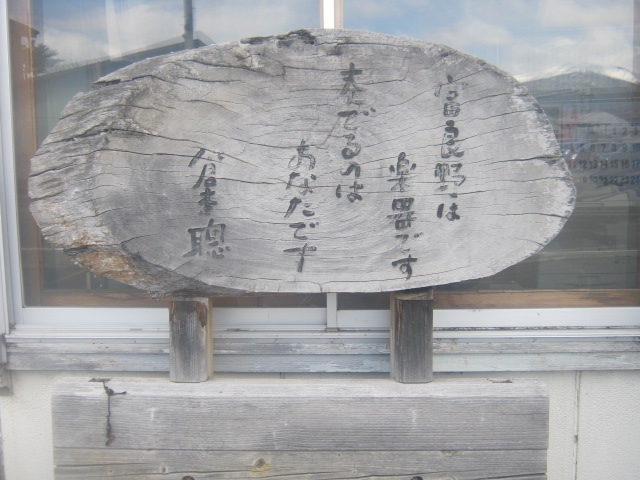 富良野は
楽器です
奏でるのは
あなたです
倉本聰